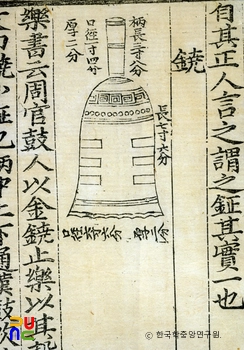 自其正人言之謂之鉦其實一也
鐃
柄長三寸八分
口徑一寸四分
厚二分
長七寸六分
厚二分
樂書云周官鼓人以金鐃止樂以其
鐃小鉦也柄中上下通漢鼓
© 한국학중앙연구원.